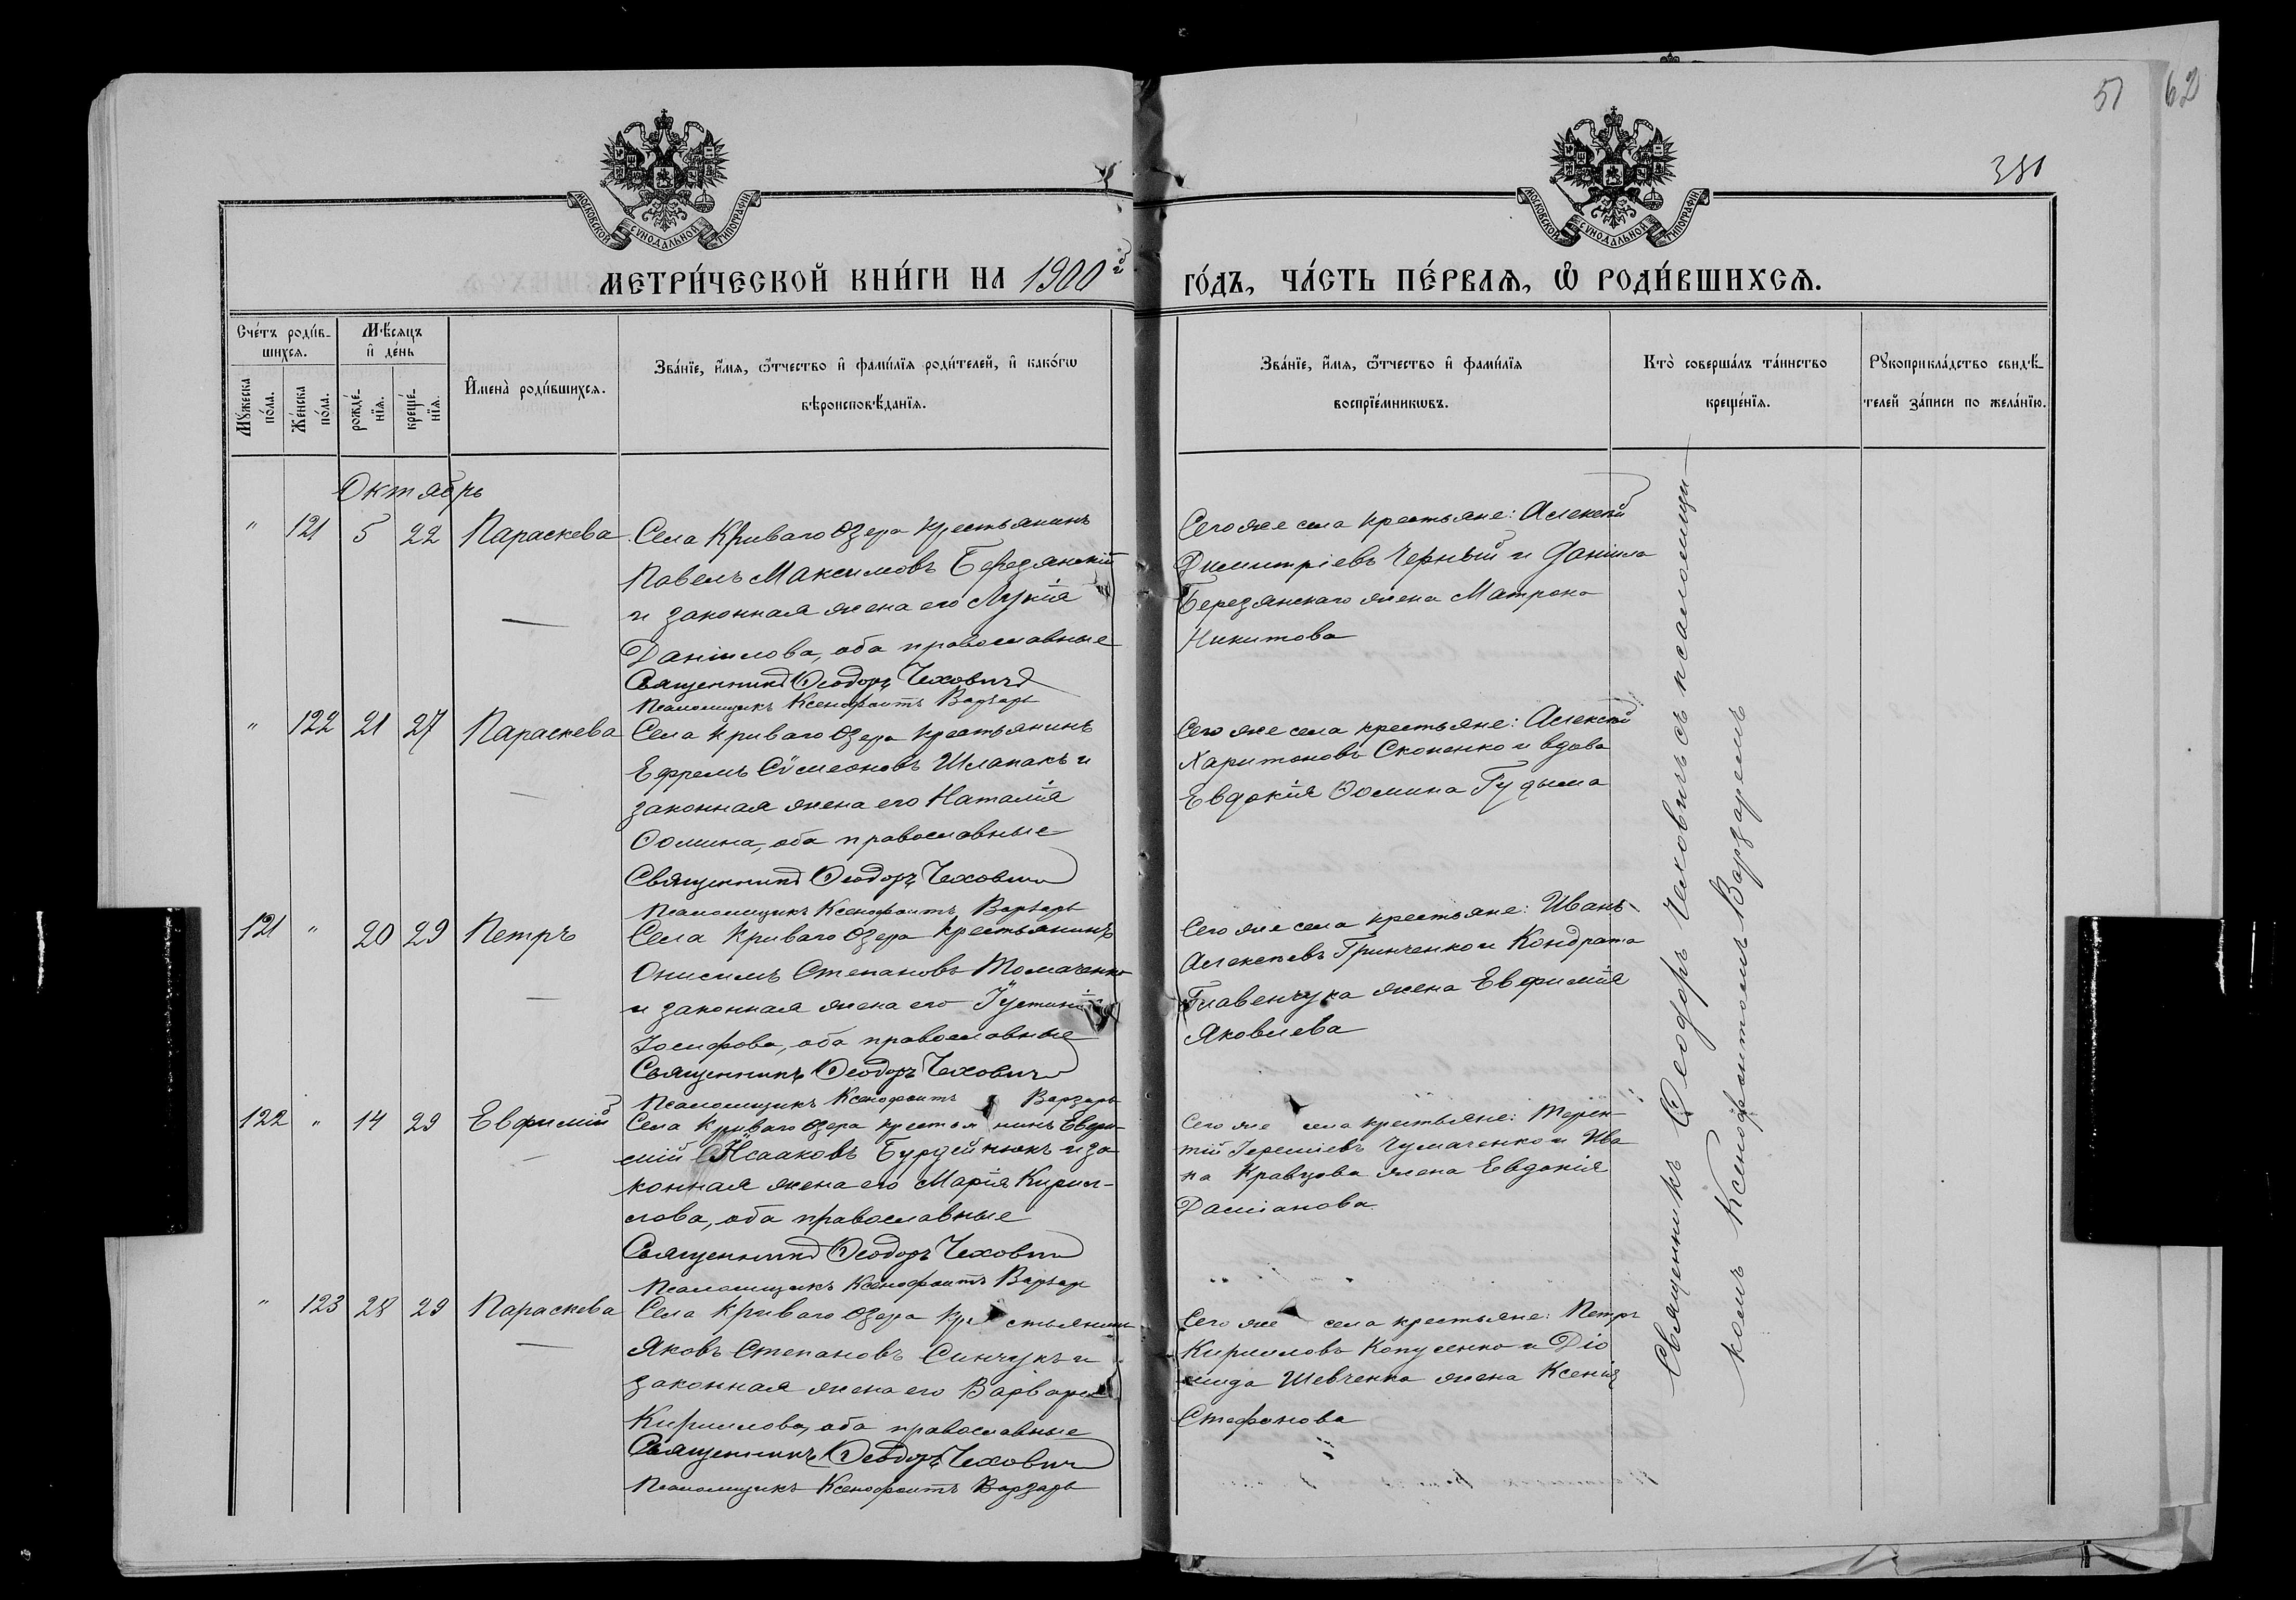 51
62
381
МОСКОВСКОЙ СѴНОДАЛЬНОЙ ТИПОГРАФІИ
МОСКОВСКОЙ СѴНОДАЛЬНОЙ ТИПОГРАФІИ
МЕТРИ́ЧЕСКОЙ КНИ́ГИ НА 1900й ГО́ДЪ, ЧА́СТЬ ПЕ́РВАЯ, Ѽ РОДИ́ВШИХСЯ.
Сче́тъ роди́в-
шихся.
Мꙋ́жеска по́ла.
Же́нска по́ла.
Мѣ́сяцъ
и҆ де́нь
рожде́-
нїя.
креще́-
нїя.
И҆мена̀ роди́вшихся.
Зва́нїе, и҆́мя, ѻ҆́тчество и҆ фами́лїя роди́телей, и҆ како́гѡ
вѣроисповѣ́данїя.
Зва́нїе, и҆́мя, ѻ҆́тчество и҆ фами́лїя
воспрїе́мникѡвъ.
Кто̀ соверша́лъ та́инство
креще́нїя.
Рꙋкоприкла́дство свидѣ́-
телей за́писи по жела́нїю.
Октябрь
" 121 5 22 Параскева
Села Криваго Озера крестьянинъ
Павелъ Максимовъ Березянскій
и законная жена его Лукія
Даніилова, оба православные
Священникъ Ѳеодоръ Чеховичъ
Псаломщикъ Ксенофонтъ Варзарь
Сего же села крестьяне: Алексѣй
Димитріевъ Черный и Даніила
Березянскаго жена Матрона
Никитова
" 122 21 27 Параскева
Села Криваго Озера крестьянинъ
Ефремъ Сѵмеоновъ Шлапакъ и
законная жена его Наталія
Ѳомина, оба православные
Священникъ Ѳеодоръ Чеховичъ
Псаломщикъ Ксенофонтъ Варзарь
Сего же села крестьяне: Алексѣй
Харитоновъ Скопенко и вдова
Евдокія Ѳомина Гудыма
121 " 20 29 Петръ
Села Криваго Озера крестьянинъ
Онисимъ Степановъ Томаченко
и законная жена его Іустинія
Іосифова, оба православные
Священникъ Ѳеодоръ Чеховичъ
Псаломщикъ Ксенофонтъ Варзарь
Сего же села крестьяне: Иванъ
Алексѣевъ Гринченко и Кондрата
Главенчука жена Евфимія
Яковлева
122 " 14 29 Евфимій
Села Криваго Озера крестьянинъ Евфи-
мій Исааковъ Бурдейнюкъ и за-
конная жена его Марія Кирил-
лова, оба православные
Священникъ Ѳеодоръ Чеховичъ
Псаломщикъ Ксенофонтъ Варзарь
Сего же села крестьяне: Терен-
тій Іереміевъ Чумаченко и Ива-
на Кравцова жена Евдокія
Даміанова
" 123 28 29 Параскева
Села Криваго Озера крестьянинъ
Яковъ Степановъ Синчукъ и
законная жена его Варвара
Кириллова, оба православные
Священникъ Ѳеодоръ Чеховичъ
Псаломщикъ Ксенофонтъ Варзарь
Сего же села крестьяне: Петръ
Кирилловъ Копусенко и Діо-
мида Шевченка жена Ксенія
Стефанова
Священникъ Ѳеодоръ Чеховичъ съ псаломщи-
комъ Ксенофонтомъ Варзаремъ